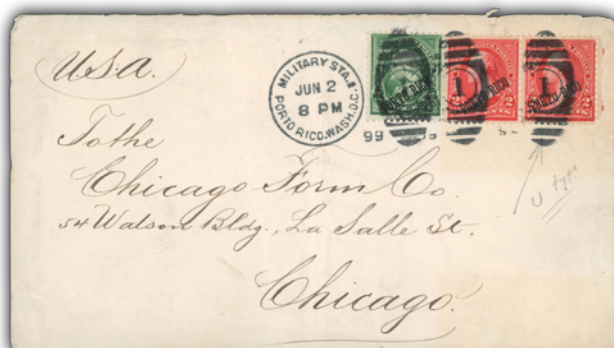 U.S.A.
MILITARY STA. 1.
JUN 2
8 PM
PORTO RICO. WASH. D.C.
99
PORTO RICO
PORTO RICO
PORTO RICO
1
1
2
2
To the
Chicago Form Co.
54 Walson Bldg., La Salle St.
Chicago.
U type